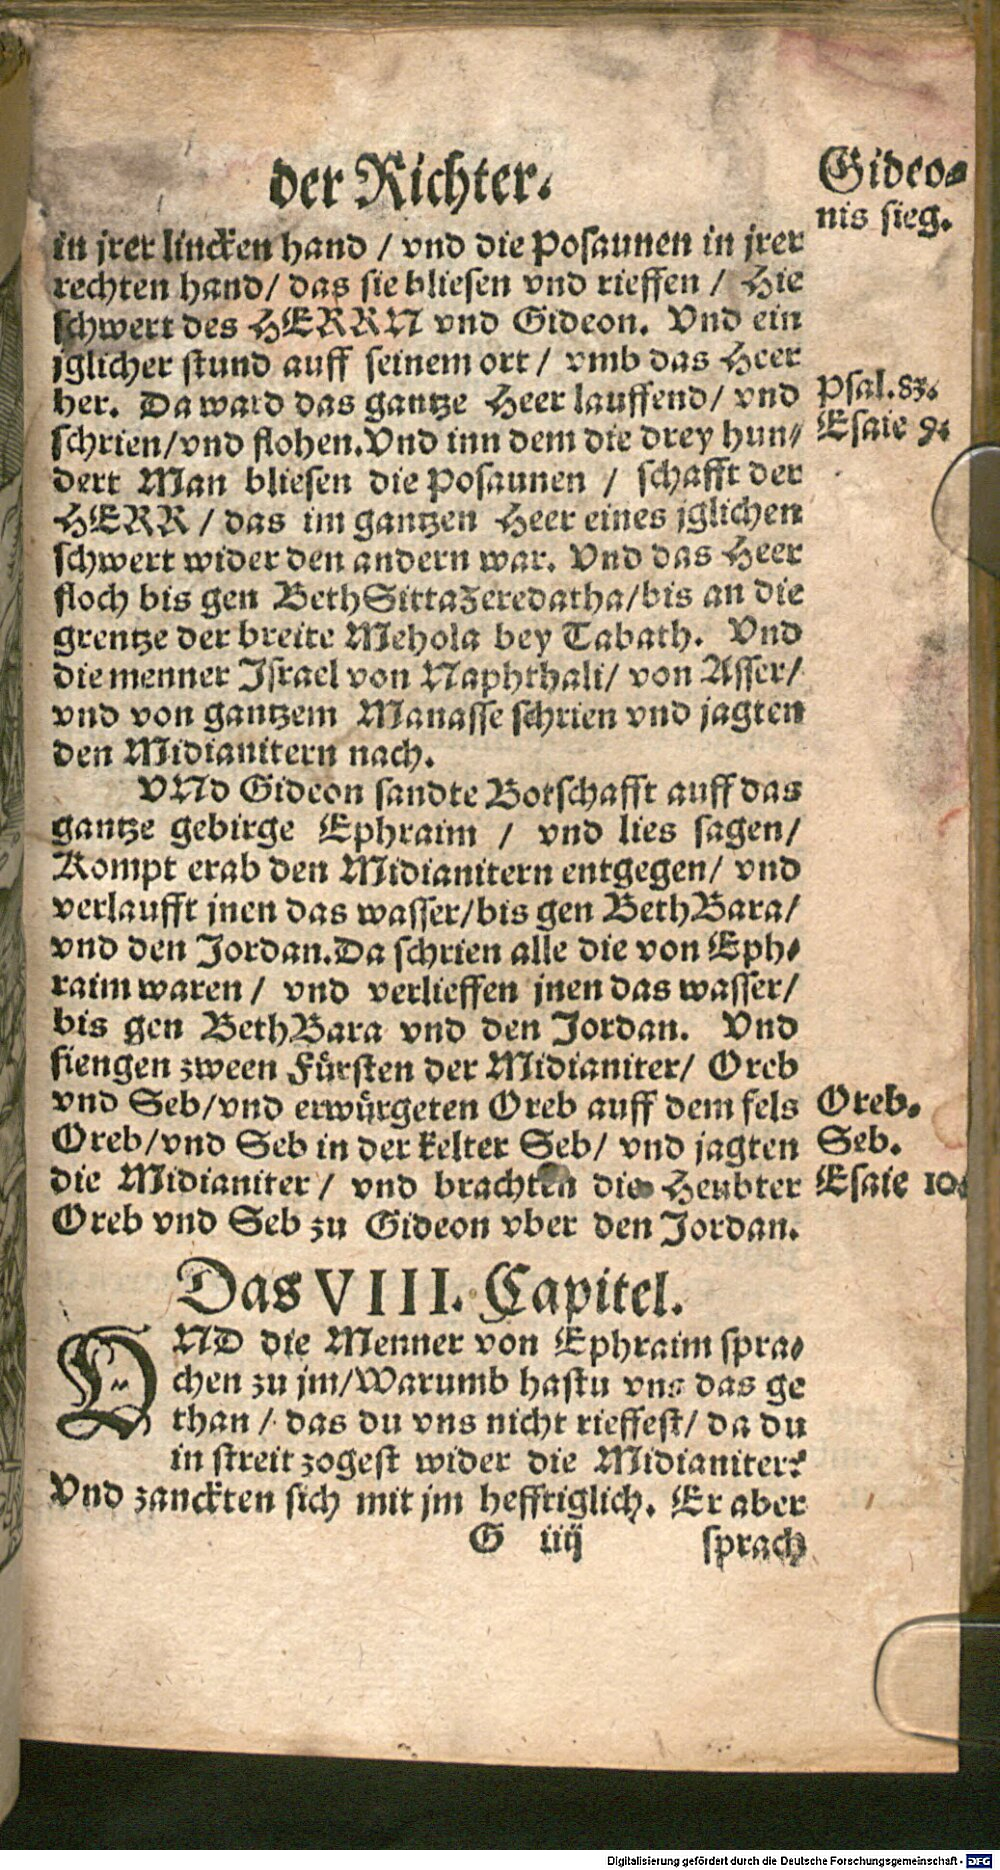 der Richter.
Gideo⸗
nis sieg.
in jrer lincken hand / vnd die Posaunen in jrer
rechten hand / das sie bliesen vnd rieffen / Hie
schwert des HERRN vnd Gideon. Vnd ein
jglicher stund auff seinem ort / vmb das Heer
her. Da ward das gantze Heer lauffend / vnd
Psal. 83.
schrien / vnd flohen. Vnd inn dem die drey hun⸗
Esaie 9.
dert Man bliesen die Posaunen / schafft der
HERR / das im gantzen Heer eines jglichen
schwert wider den andern war. Vnd das Heer
floch bis gen BethSittaZeredatha / bis an die
grentze der breite Mehola bey Tabath. Vnd
die menner Israel von Naphthali / von Asser /
vnd von gantzem Manasse schrien vnd jagten
den Midianitern nach.
VNd Gideon sandte Botschafft auff das
gantze gebirge Ephraim / vnd lies sagen /
Kompt erab den Midianitern entgegen / vnd
verlaufft jnen das wasser / bis gen BethBara /
vnd den Jordan. Da schrien alle die von Eph⸗
raim waren / vnd verlieffen jnen das wasser /
bis gen BethBara vnd den Jordan. Vnd
fiengen zween Fürsten der Midianiter / Oreb
vnd Seb / vnd erwürgeten Oreb auff dem fels
Oreb.
Oreb / vnd Seb in der kelter Seb / vnd jagten
Seb.
die Midianiter / vnd brachten die Heubter
Esaie 10.
Oreb vnd Seb zu Gideon vber den Jordan.
Das VIII. Capitel.
VND die Menner von Ephraim spra⸗
chen zu jm / Warumb hastu vns das ge
than / das du vns nicht rieffest / da du
in streit zogest wider die Midianiter?
Vnd zanckten sich mit jm hefftiglich. Er aber
G iiij
sprach
Digitalisierung gefördert durch die Deutsche Forschungsgemeinschaft - DFG